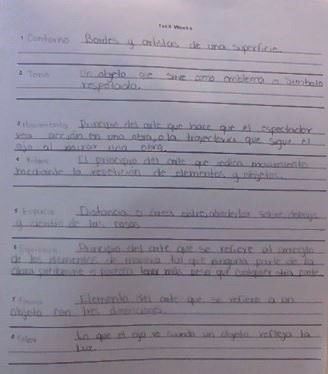 1 Contorno Bordes y aristas de una superficie.
2 Tema Un objeto que sirve como emblema o simbolo
respetado.
3 Movimiento Principio del arte que hace que el espectador
vea acción en una obra, o la trayectoria que sigue el
ojo al mirar una obra.
4 Ritmo El principio del arte que indica movimiento
mediante la repetición de elementos y objetos.
5 Espacio Distancia o área entre, alrededor, sobre, debajo
y dentro de las cosas
6 Principio del arte que se refiere al arreglo
de los elementos de manera tal que ninguna parte de la
obra parezca tener más peso que cualquier otra parte.
7 Forma Elemento del arte que se refiere a un
objeto con tres dimensiones.
8 Color Lo que el ojo ve cuando un objeto refleja la
luz.